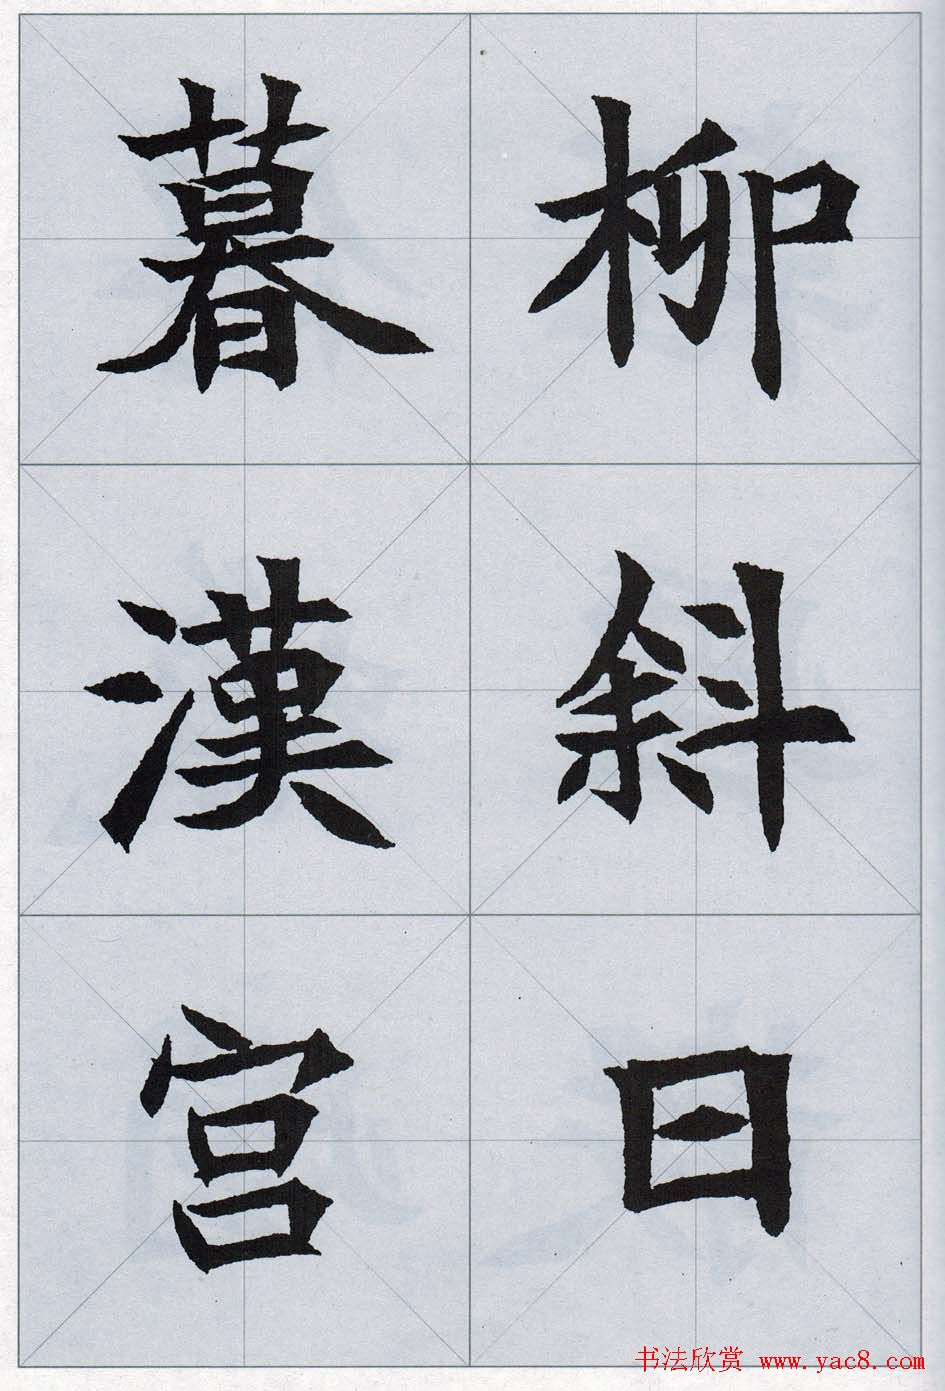 柳斜日
暮漢宫
书法欣赏 www.yac8.com